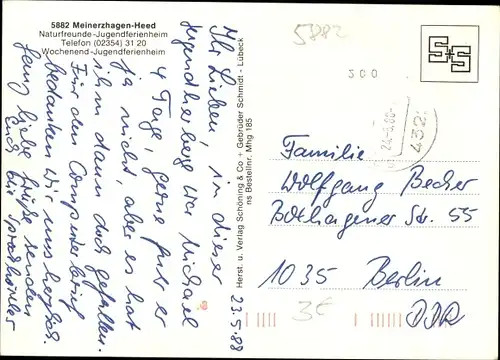 5882 Meinerzhagen-Heed
Naturfreunde-Jugendferienheim
Telefon (02354) 31 20
Wochenend-Jugendferienheim
5882
200
4321
24.-5.88-
Ihr Lieben, in dieser
Jugendherberge war Michael
4 Tage, gerne fuhr er
ja nicht, aber es hat
ihm dann doch gefallen.
Für den Computerbrief
bedanken wir uns herzlich.
Ganz liebe Grüße senden
Euch
23.5.88
Herst. u. Verlag Schöning & Co + Gebrüder Schmidt - Lübeck
ns Bestellnr. Mhg 185
Familie
Wolfgang Becher
Bothagener Str. 55
1035 Berlin
DDR
3€